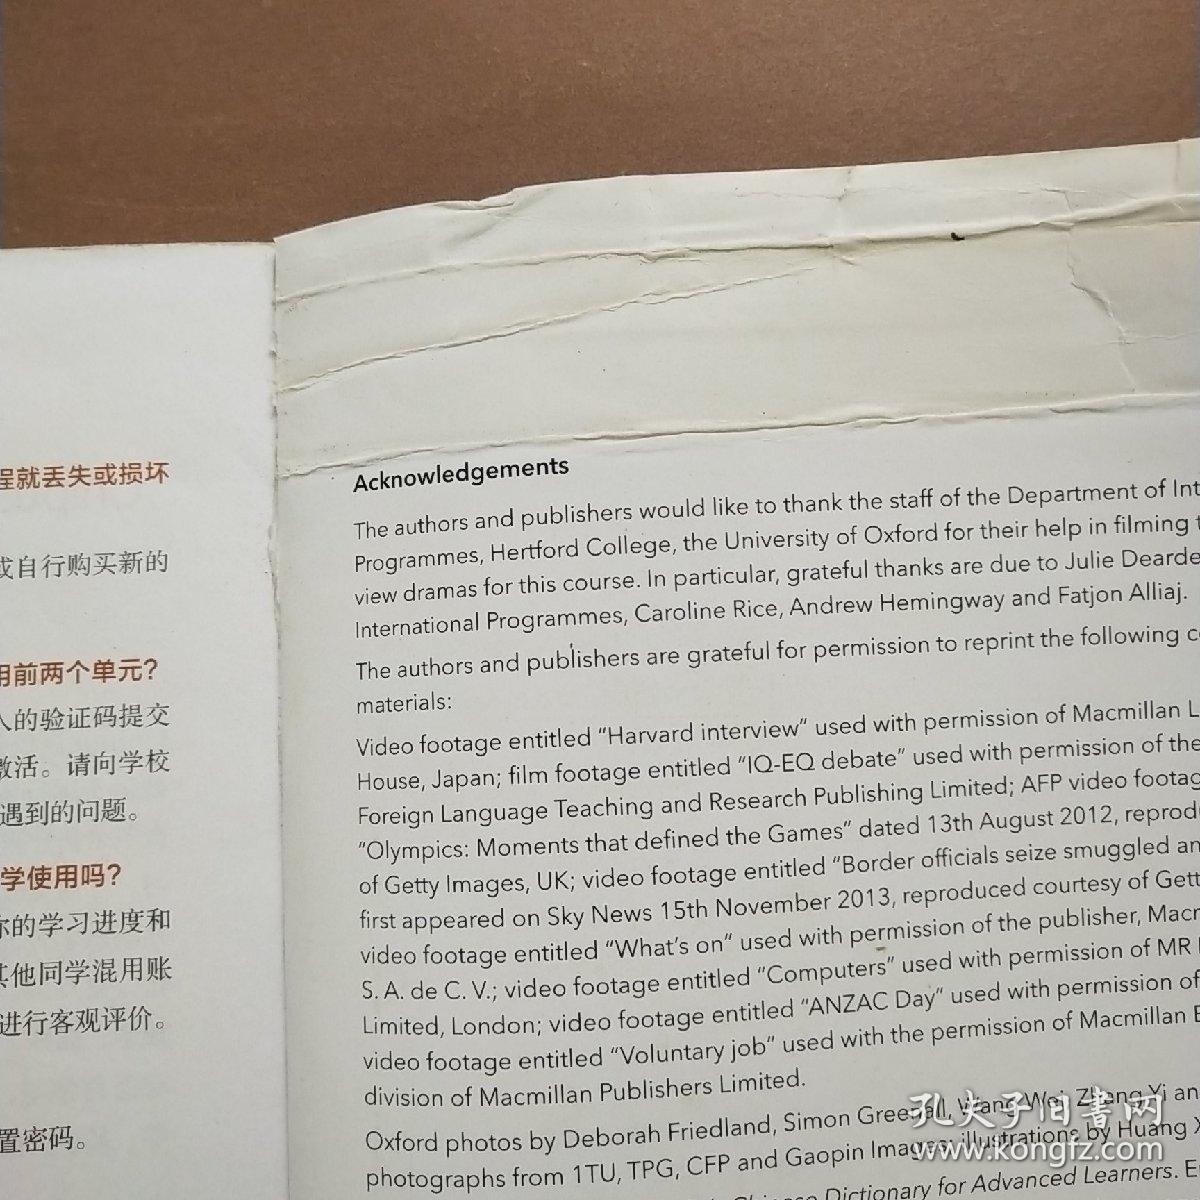 程就丢失或损坏
或自行购买新的
用前两个单元?
人的验证码提交
激活。请向学校
遇到的问题。
学使用吗?
你的学习进度和
其他同学混用账
进行客观评价。
置密码。
Acknowledgements
The authors and publishers would like to thank the staff of the Department of Int
Programmes, Hertford College, the University of Oxford for their help in filming t
view dramas for this course. In particular, grateful thanks are due to Julie Dearde
International Programmes, Caroline Rice, Andrew Hemingway and Fatjon Alliaj.
The authors and publishers are grateful for permission to reprint the following c
materials:
Video footage entitled "Harvard interview" used with permission of Macmillan L
House, Japan; film footage entitled "IQ-EQ debate" used with permission of the
Foreign Language Teaching and Research Publishing Limited; AFP video footag
"Olympics: Moments that defined the Games" dated 13th August 2012, reprod
of Getty Images, UK; video footage entitled "Border officials seize smuggled an
first appeared on Sky News 15th November 2013, reproduced courtesy of Gett
video footage entitled "What's on" used with permission of the publisher, Macm
S. A. de C. V.; video footage entitled "Computers" used with permission of MR
Limited, London; video footage entitled "ANZAC Day" used with permission of
video footage entitled "Voluntary job" used with the permission of Macmillan E
division of Macmillan Publishers Limited.
Oxford photos by Deborah Friedland, Simon Greenall, Wang Wei, Zhang Yi an
photographs from 1TU, TPG, CFP and Gaopin Images; illustrations by Huang X
Chinese Dictionary for Advanced Learners. E
孔夫子旧書网
www.kongfz.com